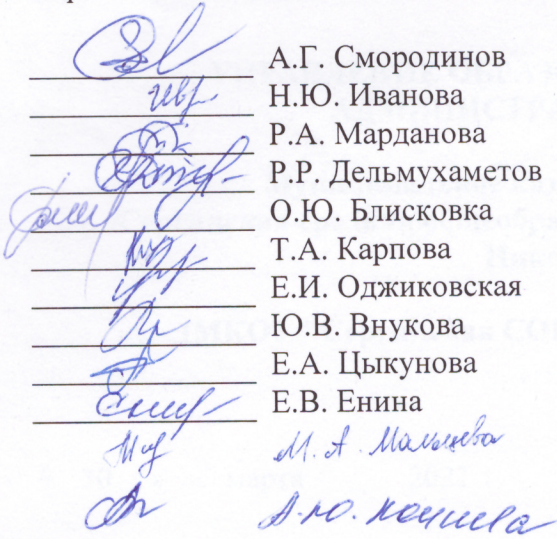 А.Г. Смородинов
Н.Ю. Иванова
Р.А. Марданова
Р.Р. Дельмухаметов
О.Ю. Блисковка
Т.А. Карпова
Е.И. Оджиковская
Ю.В. Внукова
Е.А. Цыкунова
Е.В. Енина
М.А. Мальцева
А.Ю.